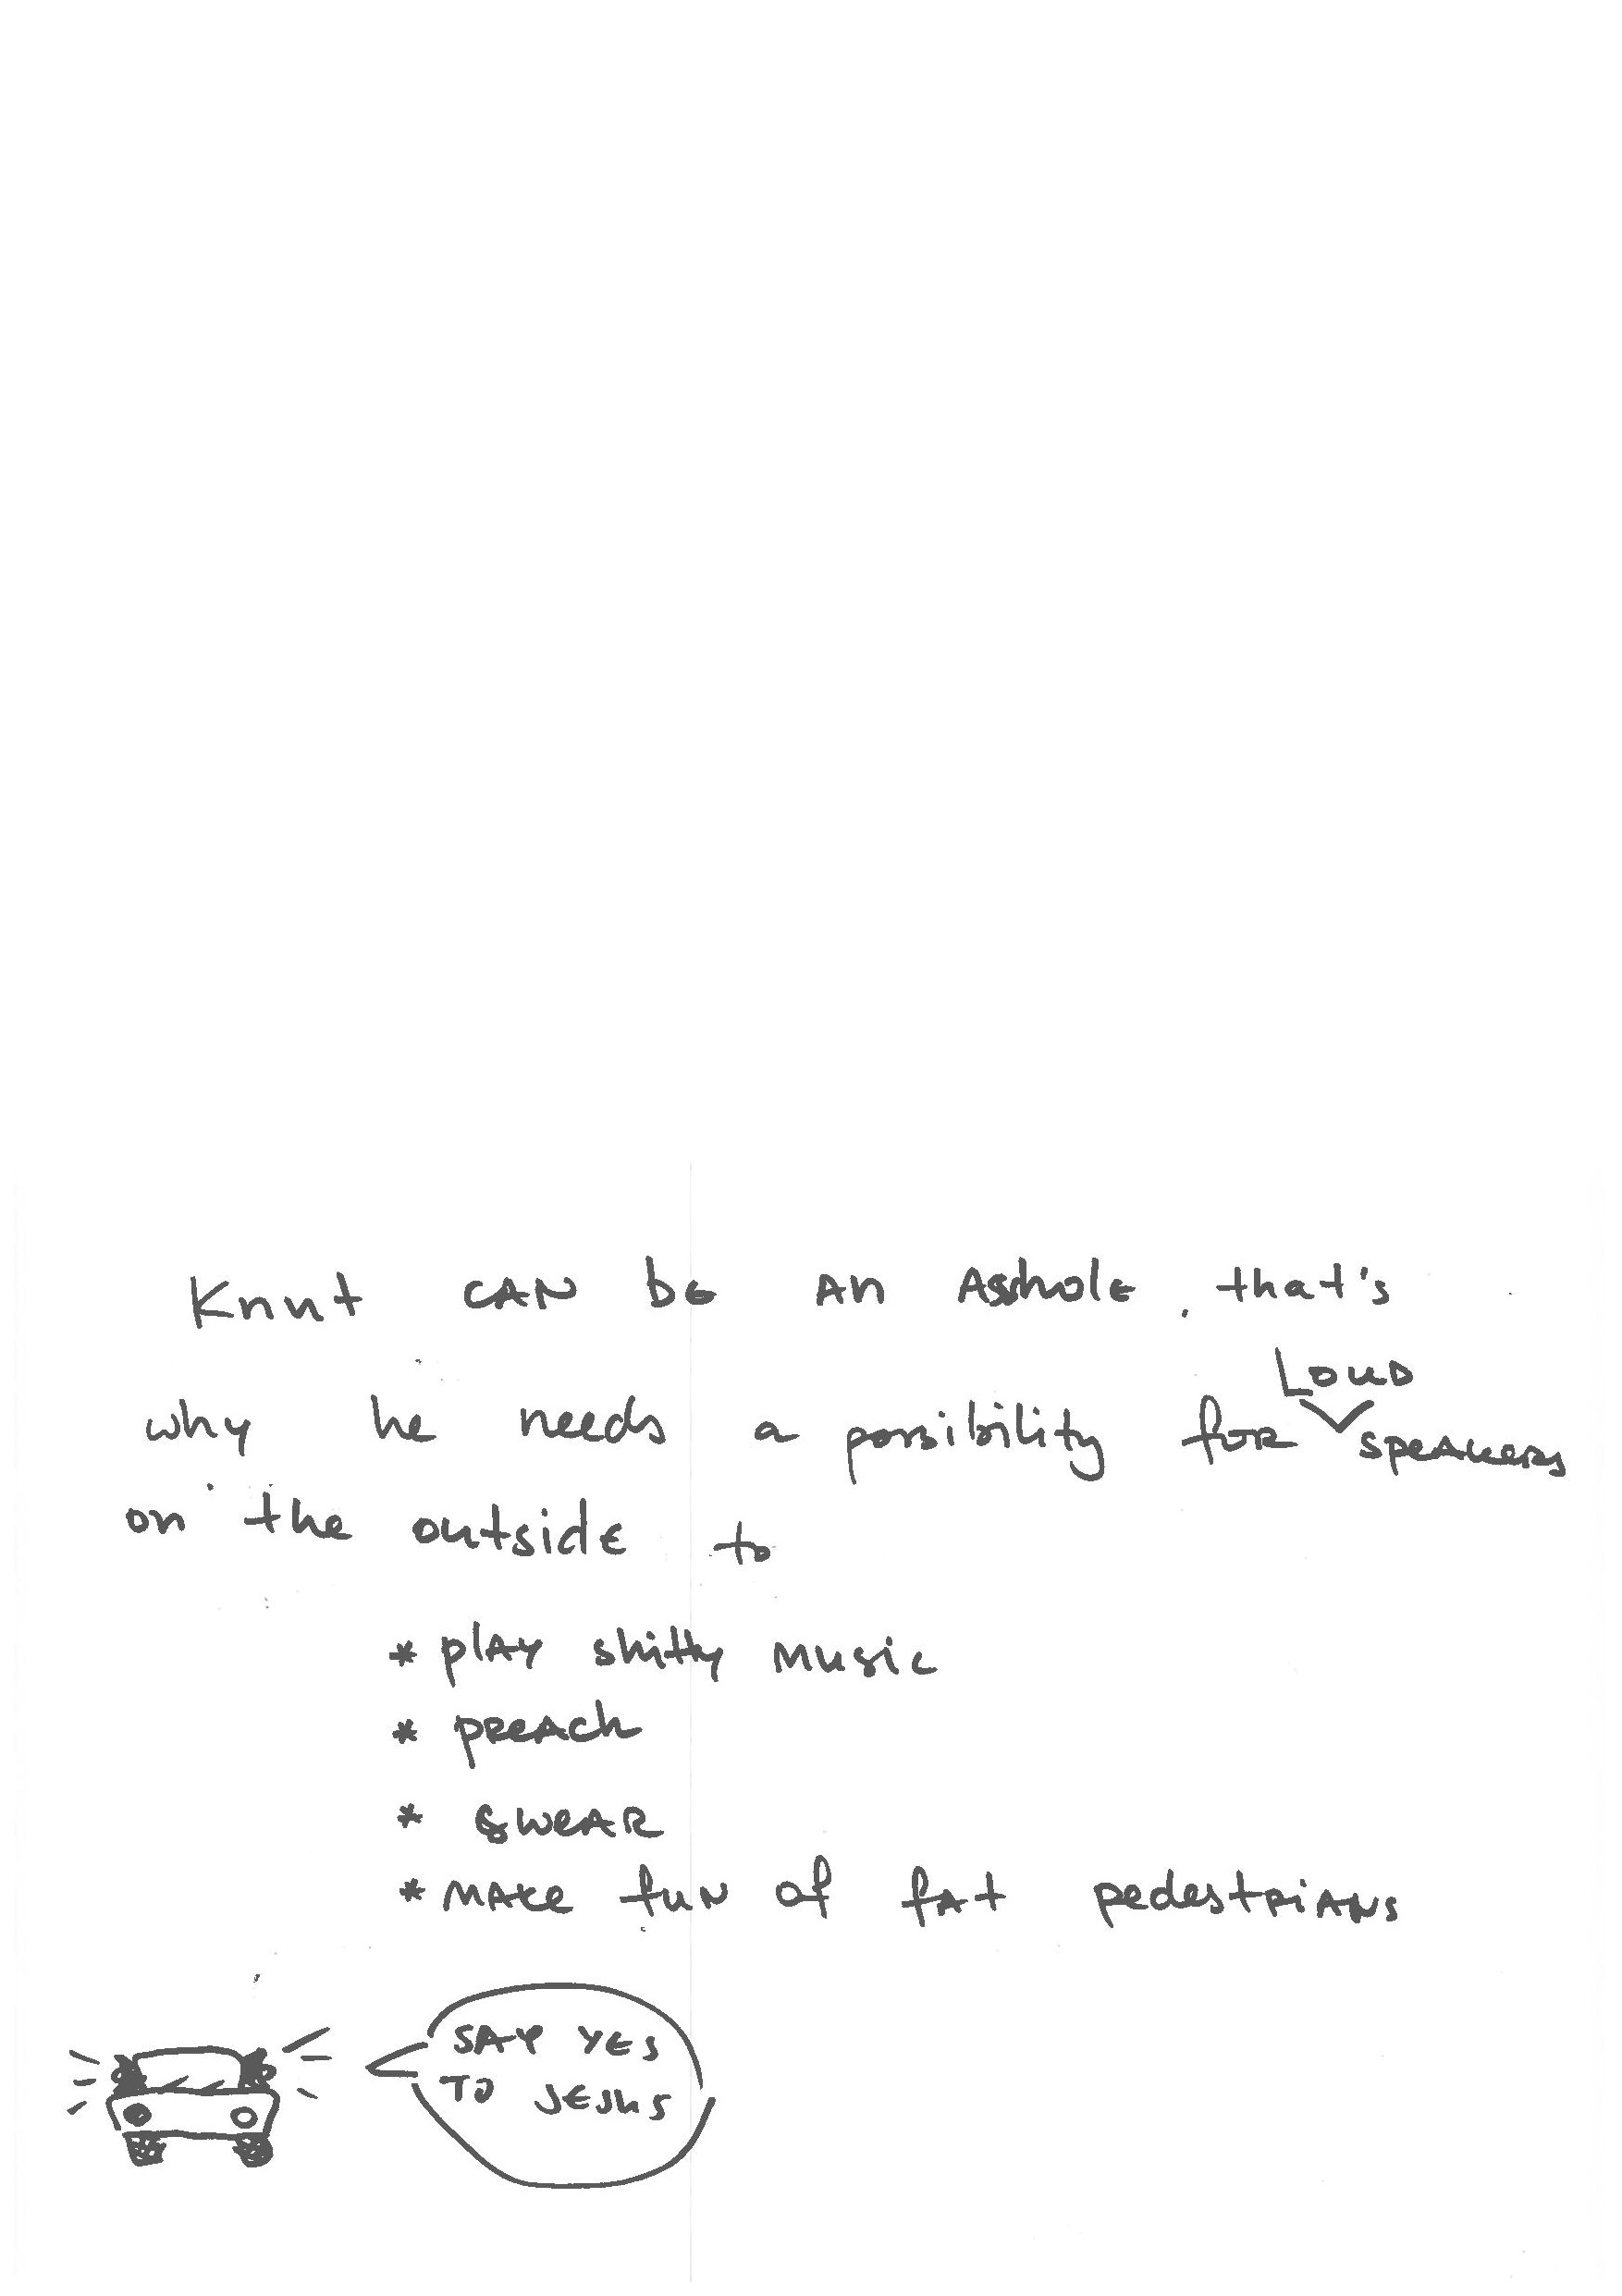 Knut CAN bE An Asshole. that's
why he needs a possibility for LOUD speakers
on the outside to
* plAy shitty music
* preach
* swear
* make fun of fat pedestrians
SAY YES
TO JESUS